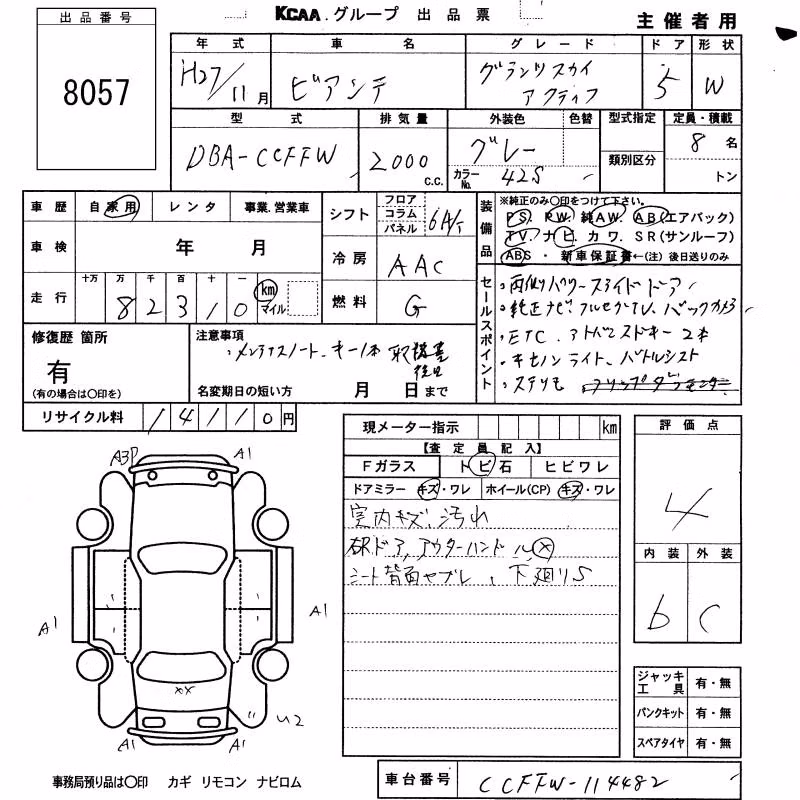 KCAA.グループ 出品票
主催者用
出品番号
8057
年式 車名 グレード ドア 形状
H27/11月 ビアンテ グランツスカイ アクティブ 5 W
型式 排気量 外装色 色替 型式指定 定員・積載
DBA-CCFFW 2000 c.c. グレー 8名
カラーNo. 42S 類別区分 トン
車歴 自家用 レンタ 事業.営業車
シフト フロア コラム パネル 6A/T
装備品 ※純正のみ〇印をつけて下さい。
PS PW 純AW AB(エアバック)
TV. ナビ カワ. SR(サンルーフ)
ABS・新車保証書←(注)後日送りのみ
車検 年 月
冷房 AAC
走行 十万 万 千 百 十 一
82310 km マイル
燃料 G
セールスポイント
・両側パワースライドドア
・純正ナビ、フルセグTV、バックカメラ
・ETC、アドバンスドキー2本
・キセノンライト、パドルシフト
・ステリモ フリップダウンモニター
修復歴 箇所
有
(有の場合は〇印を)
注意事項
・メンテナスノート、キー1本 取扱書 後日
名変期日の短い方 月 日まで
リサイクル料 14110円
現メーター指示 km
【査定員記入】
Fガラス トビ石 ヒビワレ
ドアミラー キズ・ワレ ホイール(CP) キズ・ワレ
室内キズ、汚れ
右Rドア、アウターハンドル×
シート背面ヤブレ、下廻りS
評価点
4
内装 外装
b C
A3P A1
A1 A1
XX
U2
A1 A1
ジャッキ工具 有・無
パンクキット 有・無
スペアタイヤ 有・無
事務局預り品は〇印 カギ リモコン ナビロム
車台番号 CCFFW-114482